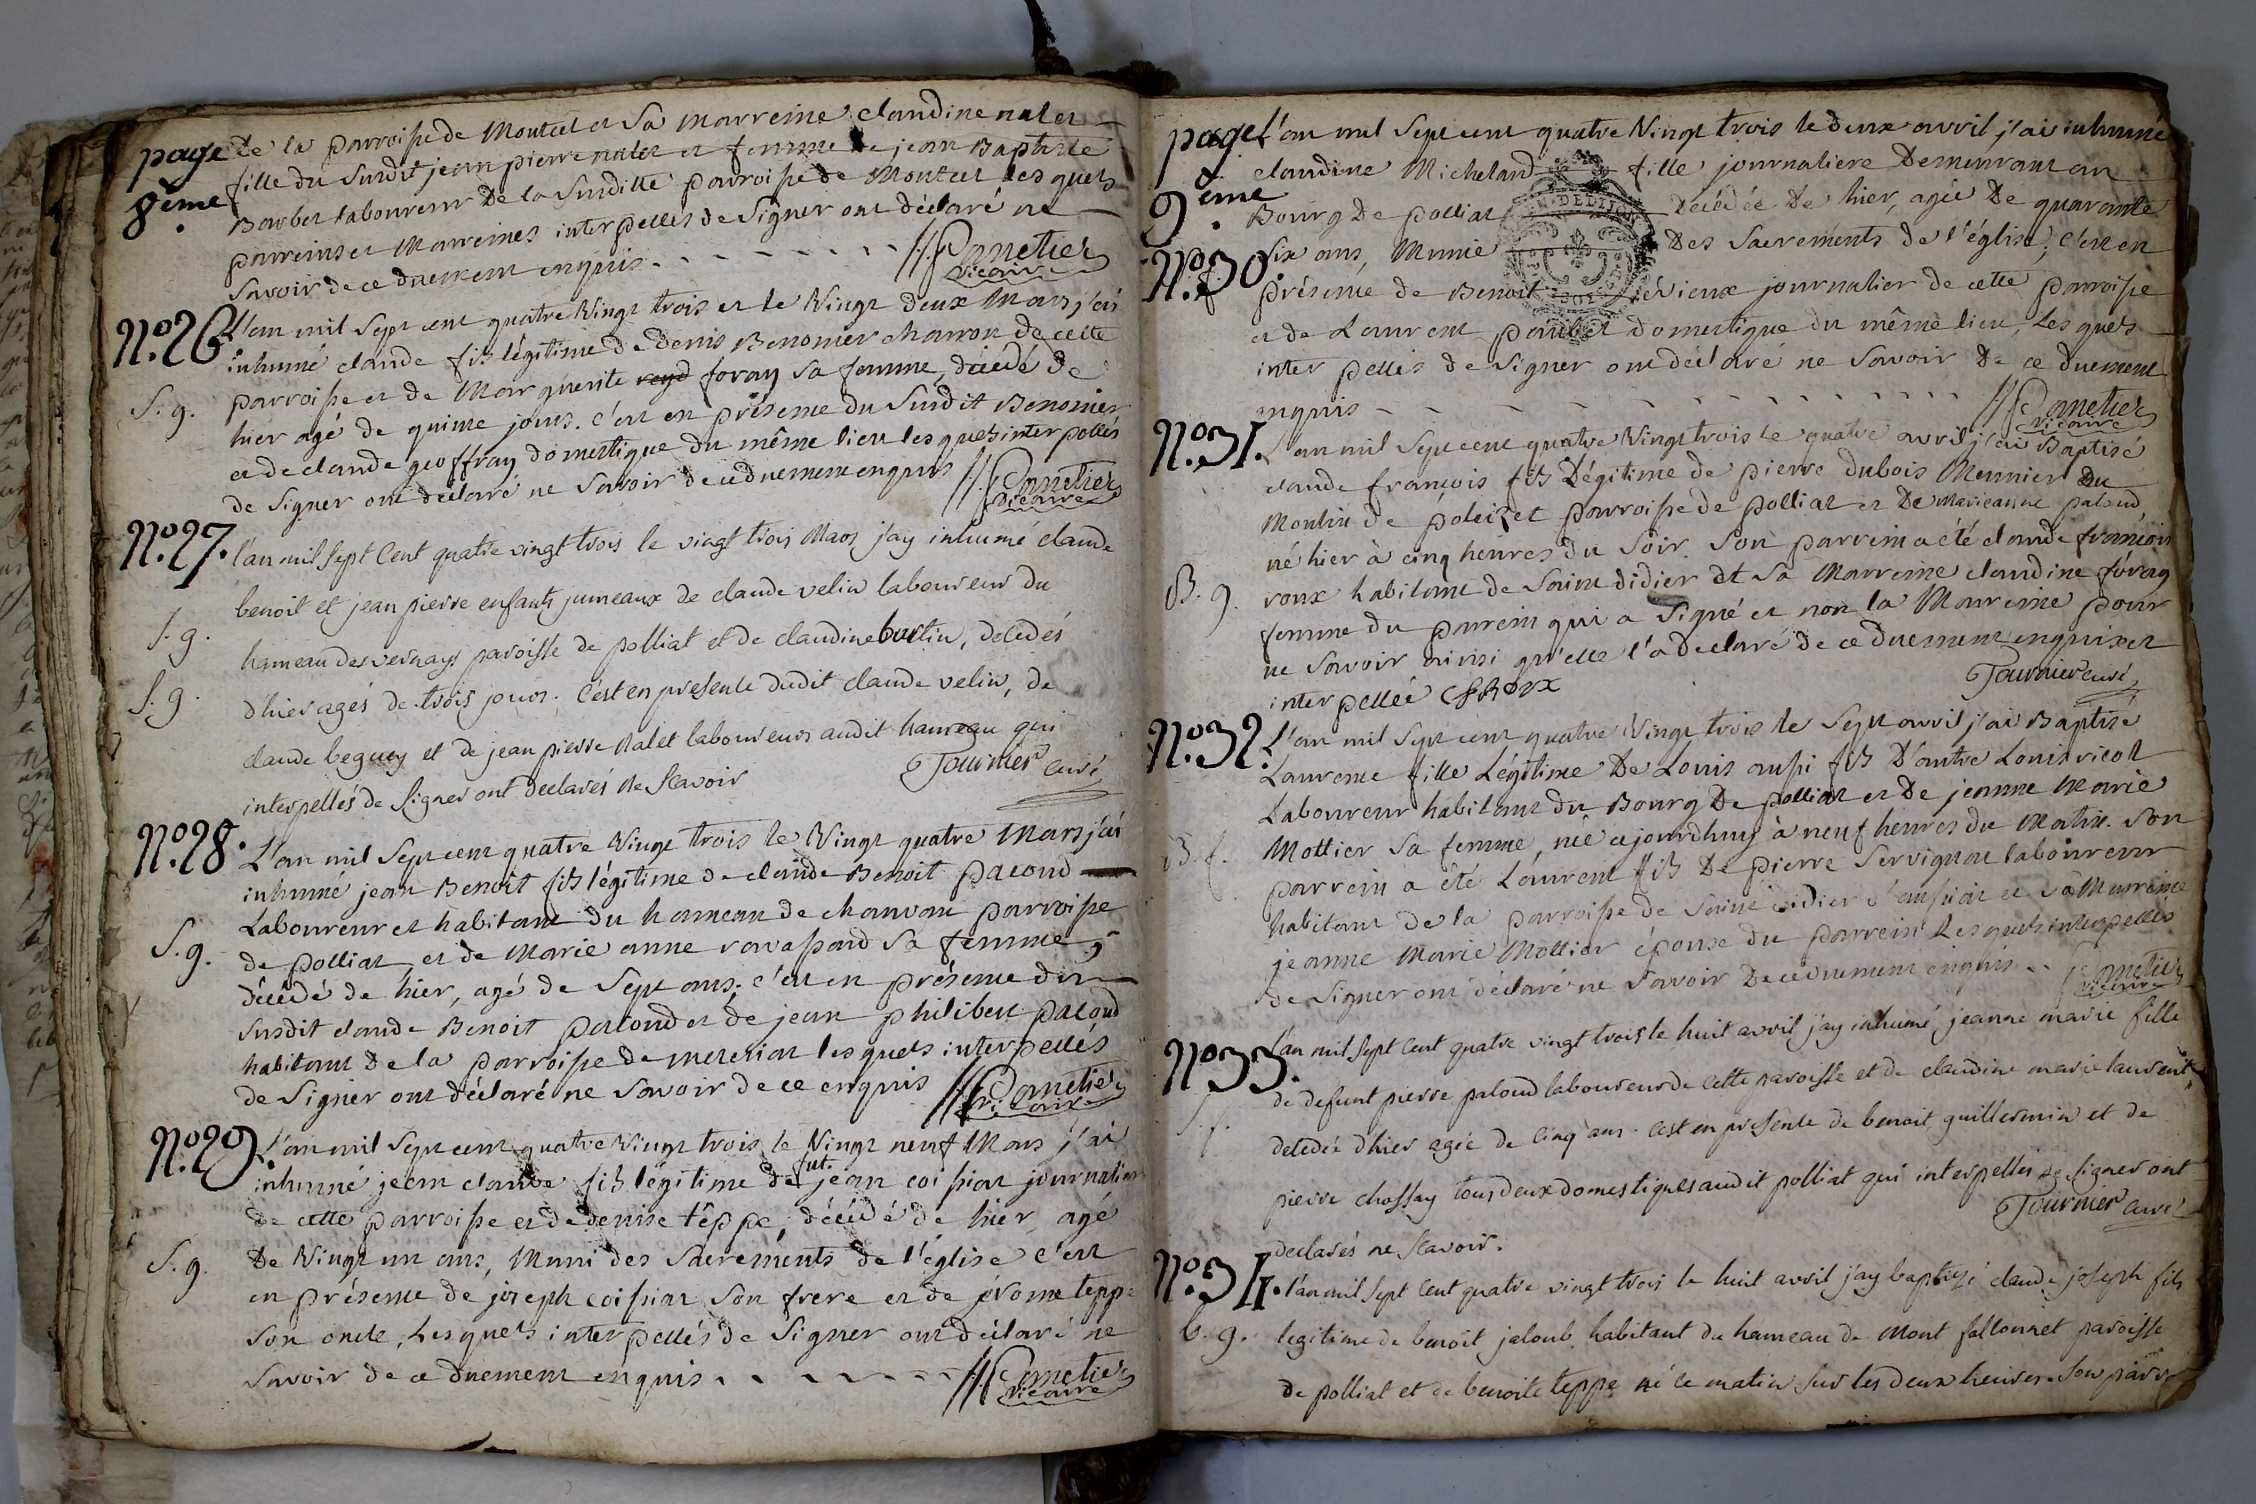 page
8ème
de la parroisse de Montcet et Sa Marreine claudine nalet
fille du Susdit jean pierre nalet et femme de jean Baptiste
Barbet laboureur De la Susditte parroisse de Montcet lesquels
parreins et Marreines interpellés de Signer ont déclaré ne
Savoir de ce duement enquis. //Panetier
vicaire
N.º 26. L'an mil Sept cent quatre Vingt trois et le Vingt deux Mars, j'ai
inhumé claude fils légitime de Denis Benonier charron de cette
S. g. parroisse et de Marguerite foray Sa femme, décédé de
hier agé de quinze jours. c'est en présence du Susdit Benonier
et de claude geoffray domestique du même lieu lesquels interpellés
de Signer ont déclaré ne Savoir de ce duement enquis //Panetier
vicaire
N.º 27. l'an mil Sept Cent quatre vingt trois le vingt trois Mars j'ay inhumé claude
benoit et jean pierre enfants jumeaux de claude velin laboureur du
S. g. hameau des vernays paroisse de polliat et de claudine buttin, décédés
S. g. d'hier agés de trois jours. C'est en presence dudit claude velin, de
claude beguey et de jean pierre nalet laboureurs audit hameau qui
interpellés de Signer ont declarés ne Scavoir Tournier curé
N.º 28. L'an mil Sept cent quatre Vingt trois le Vingt quatre Mars j'ai
inhumé jean Benoit fils légitime de claude Benoit pacoud
Laboureur et habitant du hameau de chanvan parroisse
S. g. de polliat et de Marie anne ravassard Sa femme,
décédé de hier, agé de Sept ans. c'est en présence du
Susdit claude Benoit pacoud et de jean philibert pacoud
habitant De la parroisse de mezeriat lesquels interpellés
de Signer ont déclaré ne Savoir de ce enquis //Panetier
vicaire
N.º 29. L'an mil Sept cent quatre Vingt trois le Vingt neuf Mars, j'ai
inhumé jean claude fils légitime de fut. jean coissiat journalier
de cette parroisse et de denise têppe, décédé de hier agé
S. g. De Vingt un ans, Muni des Sacrements de l'église c'est
en présence de joseph coissiat Son frere et de jérome teppe
Son oncle, Lesquels interpellés de Signer ont déclaré ne
Savoir de ce duement enquis. //Panetier
vicaire
page
9.ème
L'an mil Sept cent quatre Vingt trois le deux avril j'ai inhumé
claudine Micheland fille journaliere Demeurant au
Bourg De polliat Décédée De hier, agée De quarante
N.º 30. Six ans, Munie Des Sacrements de l'église, c'est en
présence de Benoit journalier de cette parroisse
et de Laurent domestique du même lieu, Lesquels
interpellés de Signer ont déclaré ne Savoir De ce duement
enquis //Panetier
vicaire
N.º 31. L'an mil Sept cent quatre Vingt trois le quatre avril j'ai Baptisé
claude françois fils Légitime de pierre dubois Meunier du
Moulin de poleizet parroisse de polliat et De marieanne paloud,
né hier à cinq heures du Soir. Son parrein a été claude françois
B. g. roux habitant de Saint didier et Sa Marreine claudine foray
femme du parrein qui a Signé et non la Marreine pour
ne Savoir ainsi qu'elle l'a declaré de ce duement enquise et
interpellée Tournier curé
N.º 32. L'an mil Sept cent quatre Vingt trois le Sept avril j'ai Baptisé
Laurence fille Légitime De Louis aussi fils D'autre Louis ricol
Laboureur habitant du Bourg De polliat et de jeanne Marie
B. f. Mottier Sa femme, née cejourdhuy à neuf heures du Matin. Son
parrein a été Laurent fils De pierre Servignat laboureur
habitant de la parroisse de Saint didier d'aussiat et Sa Marreine
jeanne Marie Mottier épouse du parrein Lesquels interpellés
de Signer ont déclaré ne Savoir De ce duement enquis. Panetier
vicaire
N.º 33. l'an mil Sept Cent quatre vingt trois le huit avril j'ay inhumé jeanne marie fille
de defunt pierre paloud laboureur de Cette paroisse et de claudine marie laurent
S. f. decedée d'hier agée de Cinq ans. C'est en presence de benoit guillermin et de
pierre chossay tous deux domestiques audit polliat qui interpellés de Signer ont
declarés ne Scavoir. Tournier curé
N.º 34. l'an mil Sept Cent quatre vingt trois le huit avril j'ay baptisé claude joseph fils
b. g. legitime de benoit jaloub habitant du hameau de Mont fallonnet paroisse
de polliat et de benoite teppe né ce matin Sur les deux heures. Son parr